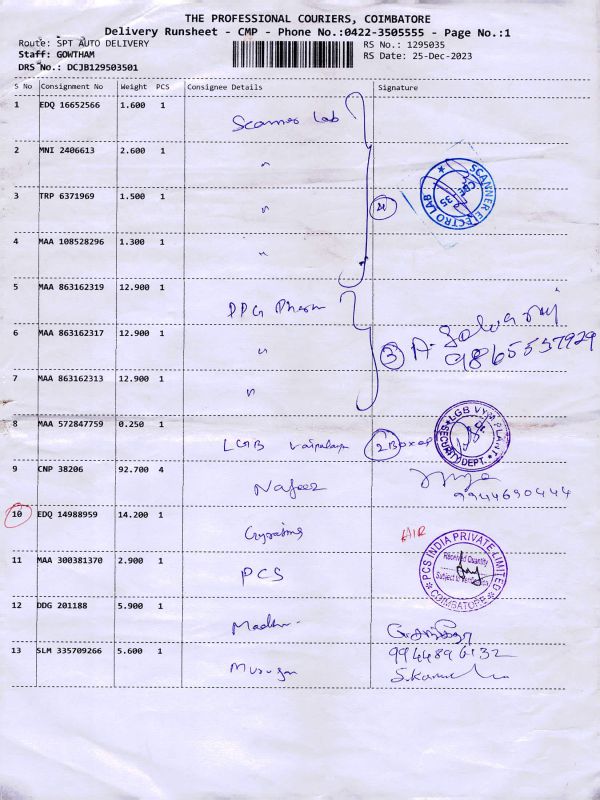 THE PROFESSIONAL COURIERS, COIMBATORE
Delivery Runsheet - CMP - Phone No.:0422-3505555 - Page No.:1
Route: SPT AUTO DELIVERY RS No.: 1295035
Staff: GOWTHAM RS Date: 25-Dec-2023
DRS No.: DCJB129503501
S No Consignment No Weight PCS Consignee Details Signature
1 EDQ 16652566 1.600 1 Scanner Lab
2 MNI 2406613 2.600 1 "
3 TRP 6371969 1.500 1 " 4
SCANNER ELECTRO LAB
CBE
35
4 MAA 108528296 1.300 1 "
5 MAA 863162319 12.900 1 PPG Pharm
6 MAA 863162317 12.900 1 " 3 A. Selvaraj
9865557929
7 MAA 863162313 12.900 1 "
8 MAA 572847759 0.250 1 LGB 2 Box
LGB VYM PLANT
SECURITY DEPT.
9 CNP 38206 92.700 4 Nafeez
9944690444
10 EDQ 14988959 14.200 1 AIR
11 MAA 300381370 2.900 1 PCS
PCS INDIA PRIVATE LIMITED
Received Quantity
Subject to Verification
COIMBATORE
12 DDG 201188 5.900 1
13 SLM 335709266 5.600 1 Murugan 9944896132